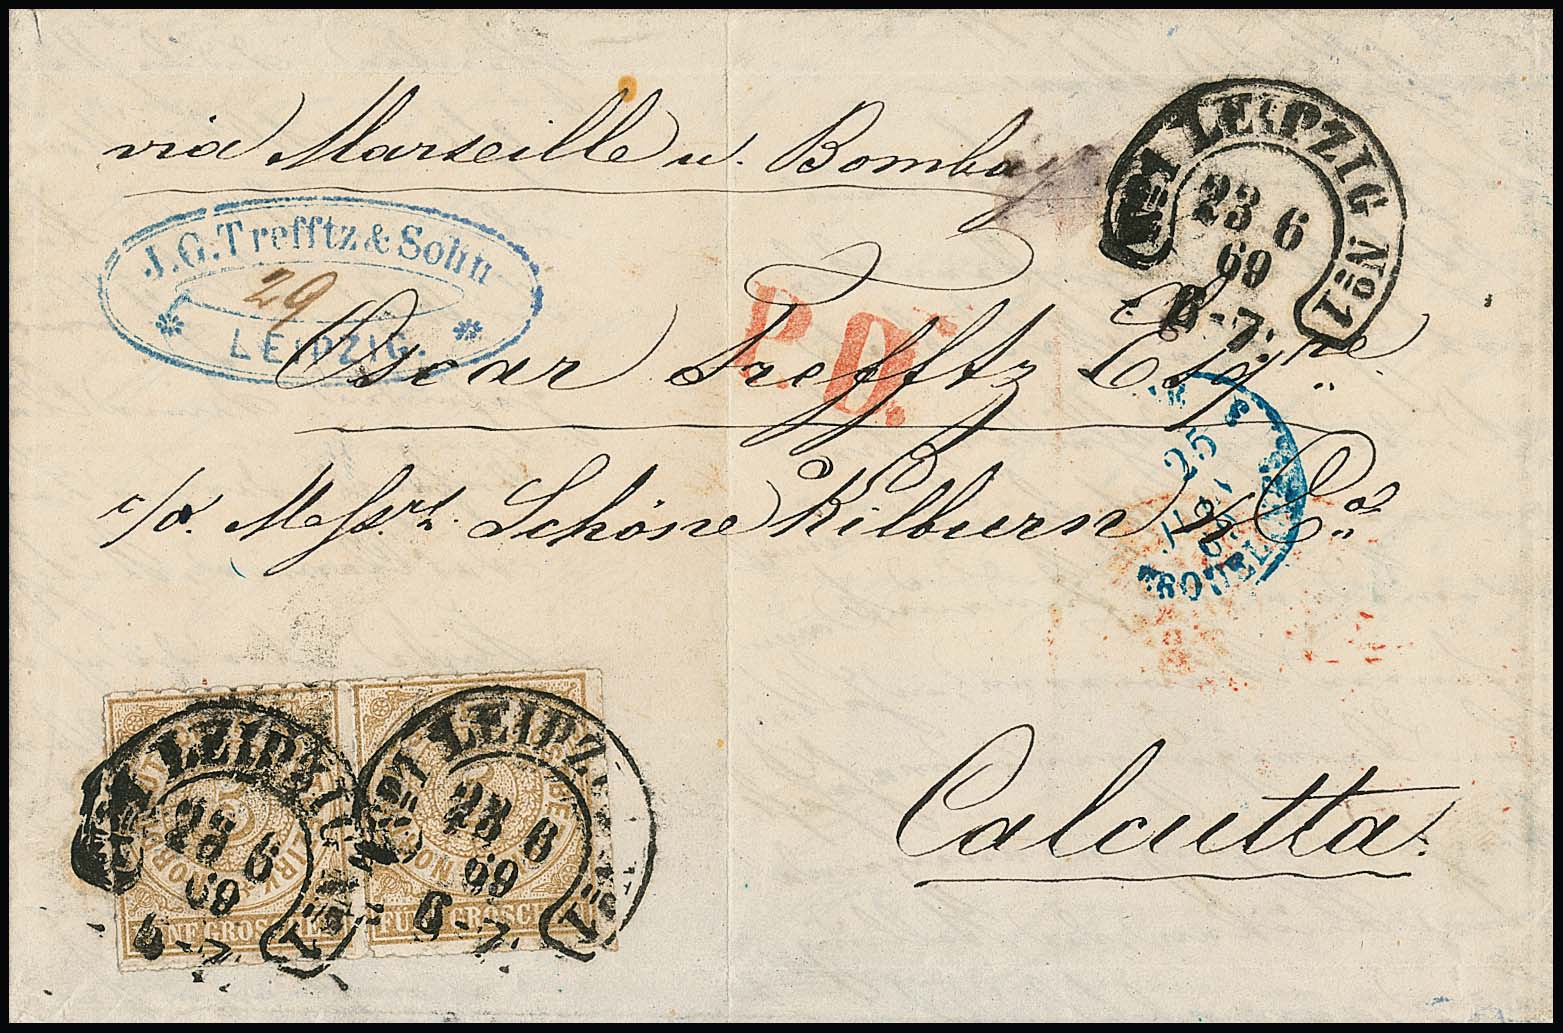 via Marseille u. Bombay
LEIPZIG No 1
23 6
69
6-7.
J. G. Trefftz & Sohn
29
LEIPZIG.
P.D.
Oscar Trefftz Esqre.
c/o. Messrs. Schöne Kilburn & Co
25
Calcutta.
LEIPZ
23 6
69
6-7.
FÜNF GROSCHEN
LEIPZ
23 6
69
6-7.
FÜNF GROSCHEN